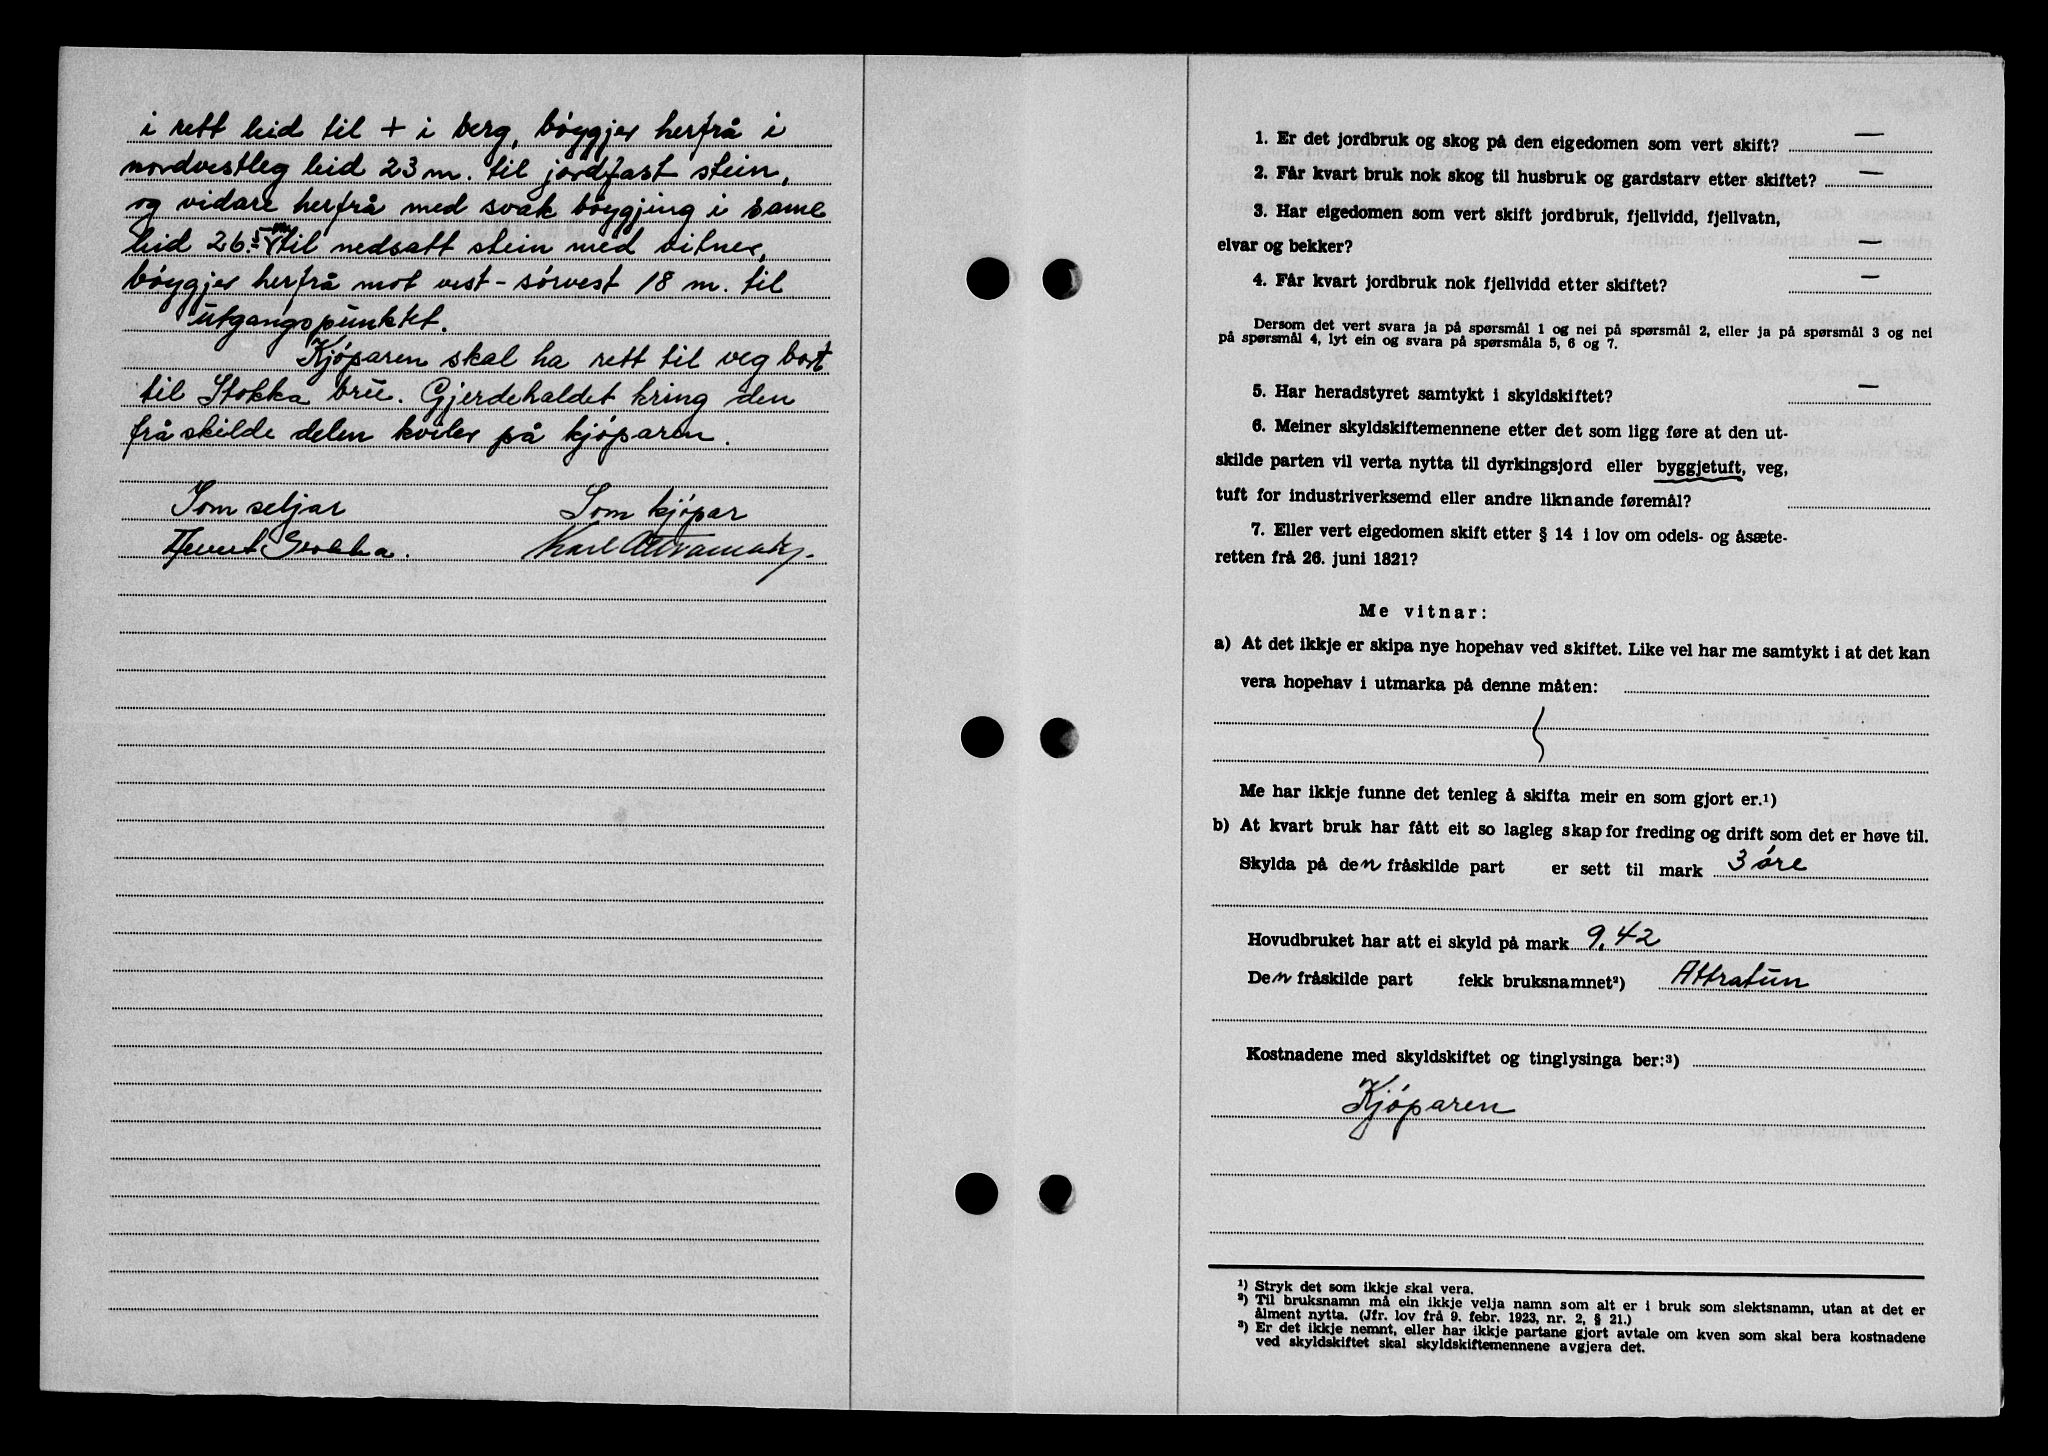 i rett leid til + i berg, bøygjer herfrå i
nordvestleg leid 23 m. til jordfast stein,
og vidare herfrå med svak bøygjing i same
leid 26.5 m til nedsatt stein med vitner,
bøygjer herfrå mot vest-sørvest 18 m. til
utgangspunktet.
Kjöparen skal ha rett til veg bort
til Stokka bru. Gjerdehaldet kring den
fråskilde delen kviler på kjöparen.
Som seljar
Som kjöpar
Stokka.
Karl
1. Er det jordbruk og skog på den eigedomen som vert skift? —
2. Får kvart bruk nok skog til husbruk og gardstarv etter skiftet? —
3. Har eigedomen som vert skift jordbruk, fjellvidd, fjellvatn,
elvar og bekker? —
4. Får kvart jordbruk nok fjellvidd etter skiftet? —
Dersom det vert svara ja på spørsmål 1 og nei på spørsmål 2, eller ja på spørsmål 3 og nei
på spørsmål 4, lyt ein og svara på spørsmåla 5, 6 og 7.
5. Har heradstyret samtykt i skyldskiftet? —
6. Meiner skyldskiftemennene etter det som ligg føre at den ut-
skilde parten vil verta nytta til dyrkingsjord eller byggjetuft, veg,
tuft for industriverksemd eller andre liknande føremål?
7. Eller vert eigedomen skift etter § 14 i lov om odels- og åsæte-
retten frå 26. juni 1821?
Me vitnar:
a) At det ikkje er skipa nye hopehav ved skiftet. Like vel har me samtykt i at det kan
vera hopehav i utmarka på denne måten:
Me har ikkje funne det tenleg å skifta meir en som gjort er.¹)
b) At kvart bruk har fått eit so lagleg skap for freding og drift som det er høve til.
Skylda på den fråskilde part er sett til mark 3 öre
Hovudbruket har att ei skyld på mark 9,42
Den fråskilde part fekk bruksnamnet²) Attratun
Kostnadene med skyldskiftet og tinglysinga ber:³)
Kjöparen
¹) Stryk det som ikkje skal vera.
²) Til bruksnamn må ein ikkje velja namn som alt er i bruk som slektsnamn, utan at det er
ålment nytta. (Jfr. lov frå 9. febr. 1923, nr. 2, § 21.)
³) Er det ikkje nemnt, eller har ikkje partane gjort avtale om kven som skal bera kostnadene
ved skyldskiftet skal skyldskiftemennene avgjera det.